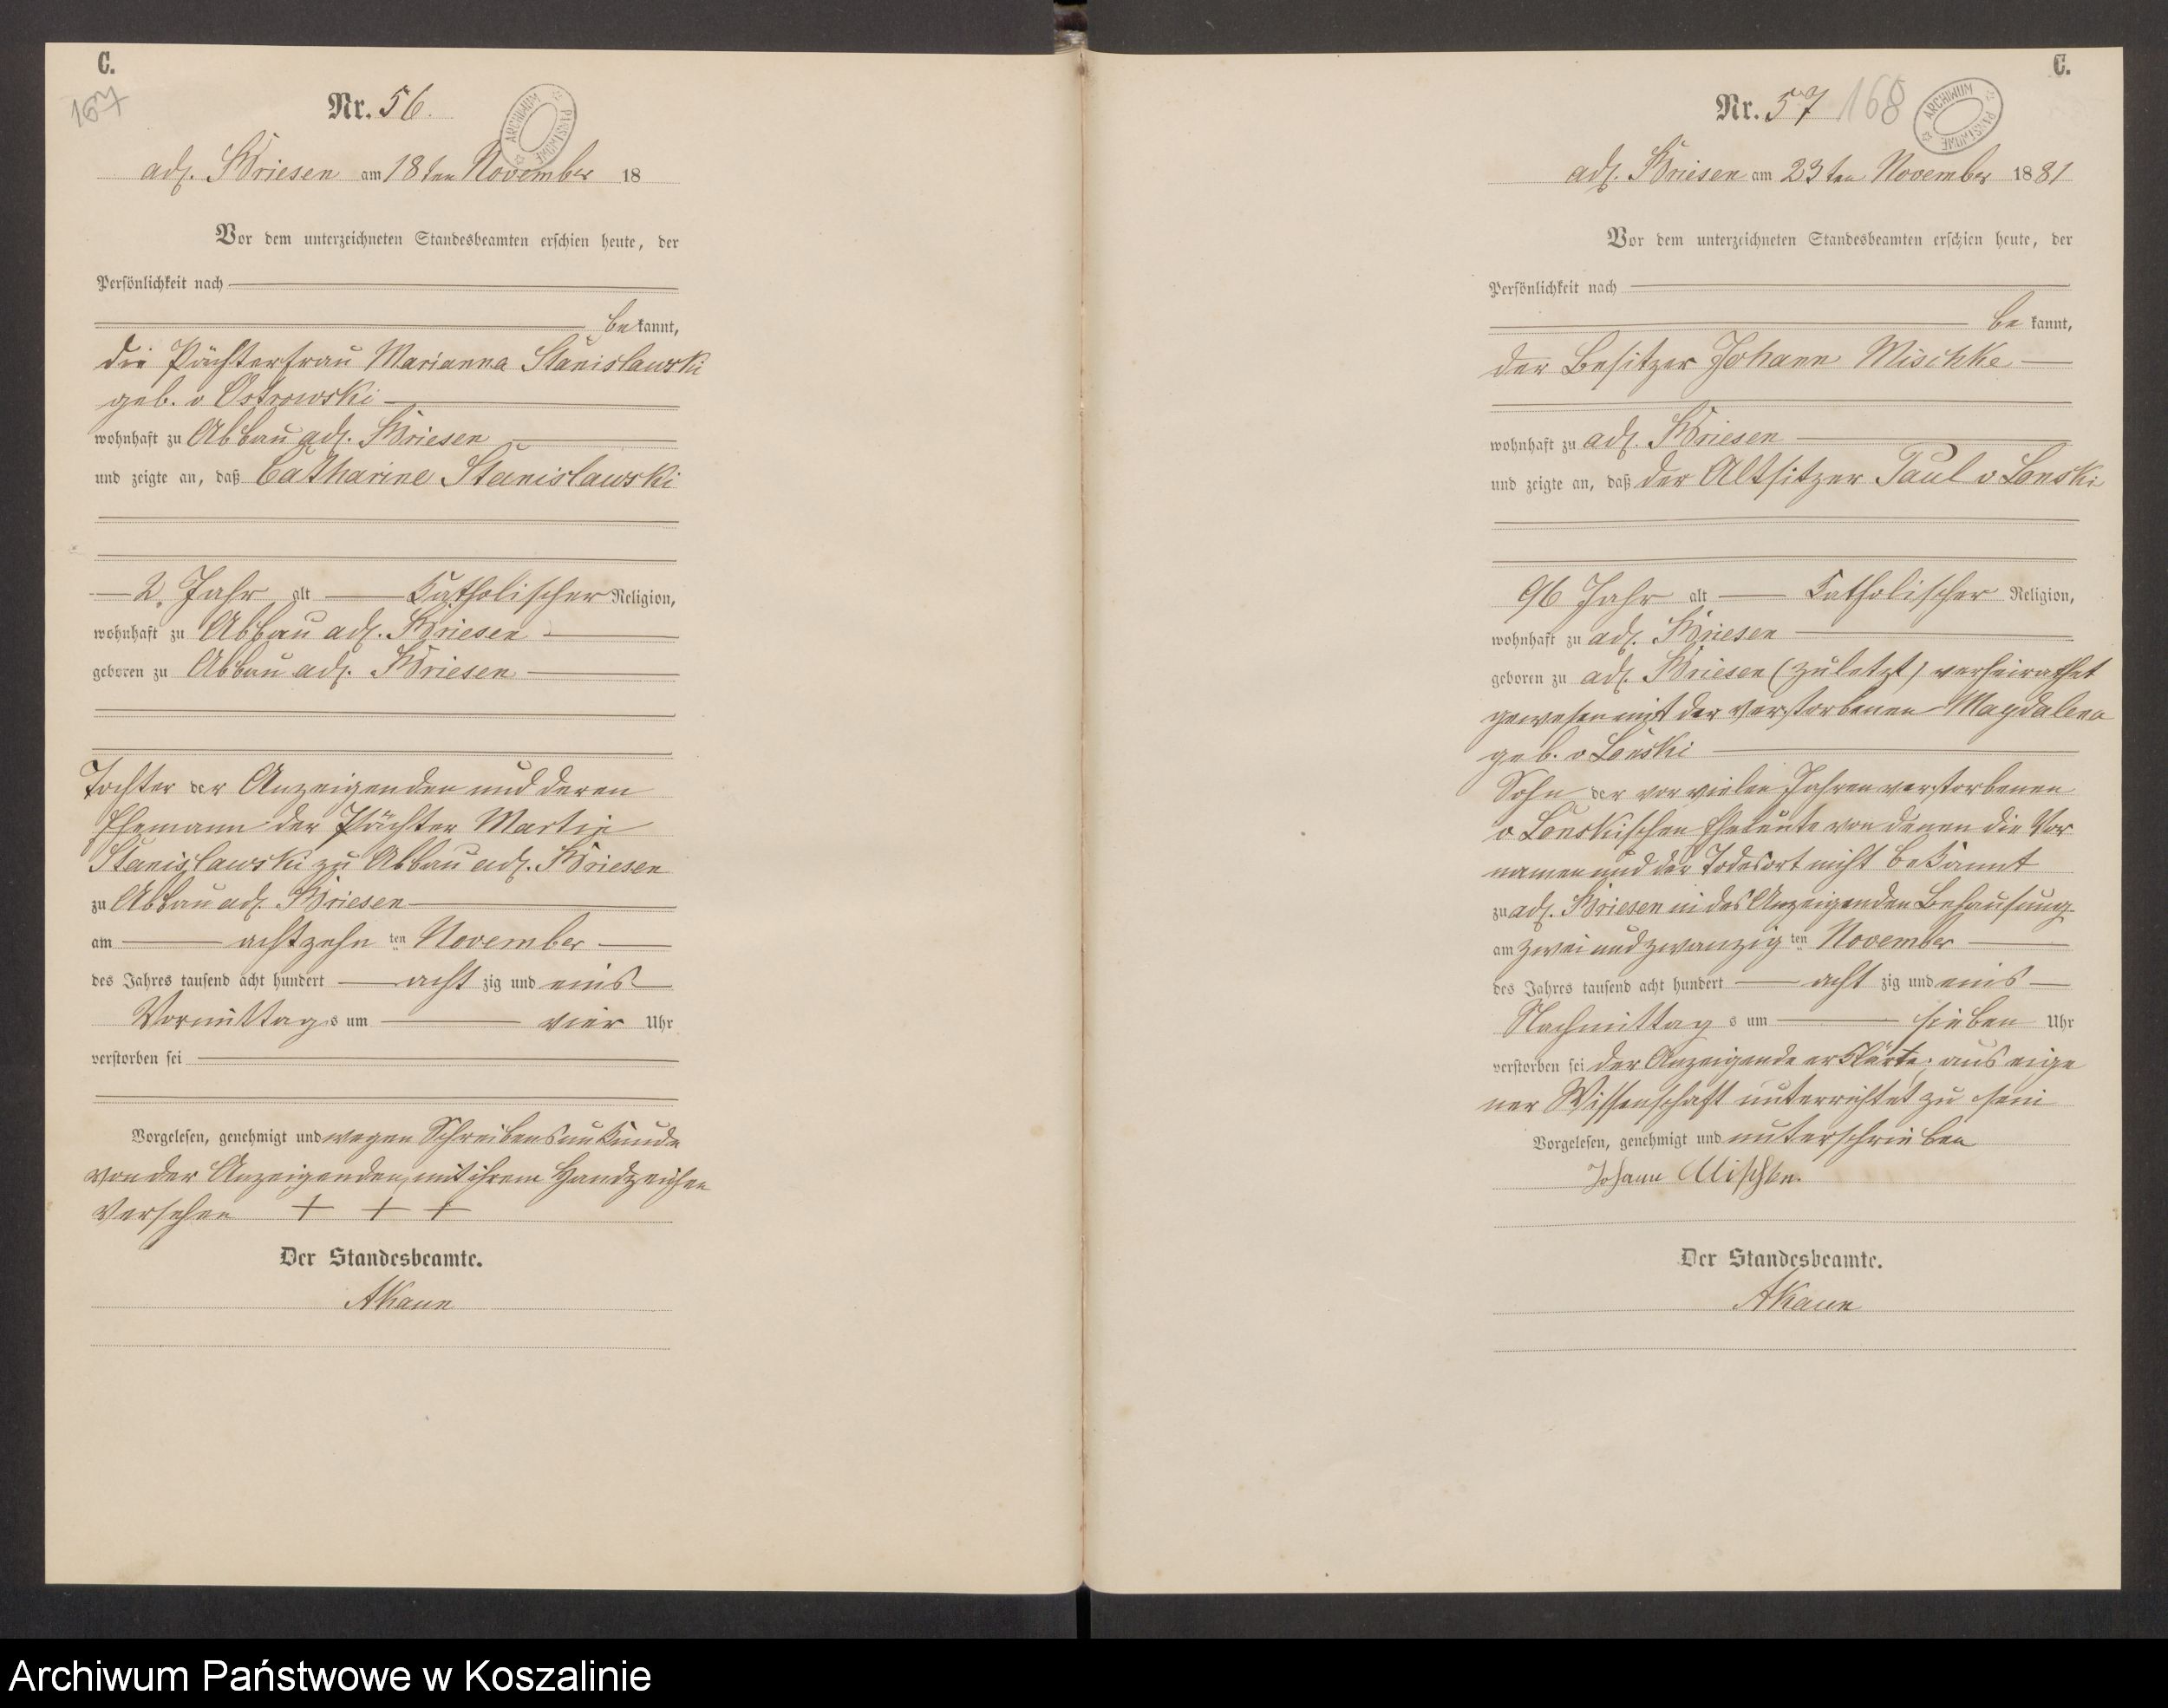 C.
167
Nr. 56.
ARCHIWUM PAŃSTWOWE
adl. Briesen am 18ten November 18
Vor dem unterzeichneten Standesbeamten erschien heute, der
Persönlichkeit nach
be kannt,
die Pächterfrau Marianna Stanislawski
geb. v Ostrowski
wohnhaft zu Abbau adl. Briesen
und zeigte an, daß Catharine Stanislawski
2 Jahr alt Katholischer Religion,
wohnhaft zu Abbau adl. Briesen
geboren zu Abbau adl. Briesen
Tochter der Anzeigenden und deren
Ehemann der Pächter Martin
Stanislawski zu Abbau adl. Briesen
zu Abbau adl. Briesen
am achtzehn ten November
des Jahres tausend acht hundert acht zig und eins
Vormittag s um vier Uhr
verstorben sei
Vorgelesen, genehmigt und wegen Schreibensunkunde
von der Anzeigenden mit ihrem Handzeichen
versehen + + +
Der Standesbeamte.
AKaun
C.
Nr. 57 168
ARCHIWUM PAŃSTWOWE
adl. Briesen am 23ten November 1881
Vor dem unterzeichneten Standesbeamten erschien heute, der
Persönlichkeit nach
be kannt,
der Besitzer Johann Mischke
wohnhaft zu adl. Briesen
und zeigte an, daß der Altsitzer Paul v Lonski
96 Jahr alt Katholischer Religion,
wohnhaft zu adl. Briesen
geboren zu adl. Briesen (zuletzt) verheirathet
gewesen mit der verstorbenen Magdalena
geb. v Lonski
Sohn der vor vielen Jahren verstorbenen
v Lonskischen Eheleute von denen die Vor
namen und der Todesort nicht bekannt
zu adl. Briesen in des Anzeigenden Behausung
am zwei und zwanzig ten November
des Jahres tausend acht hundert acht zig und eins
Nachmittag s um sieben Uhr
verstorben sei der Anzeigende erklärte, aus eige
ner Wissenschaft unterrichtet zu sein
Vorgelesen, genehmigt und unterschrieben
Johann Mischke.
Der Standesbeamte.
AKaun
Archiwum Państwowe w Koszalinie